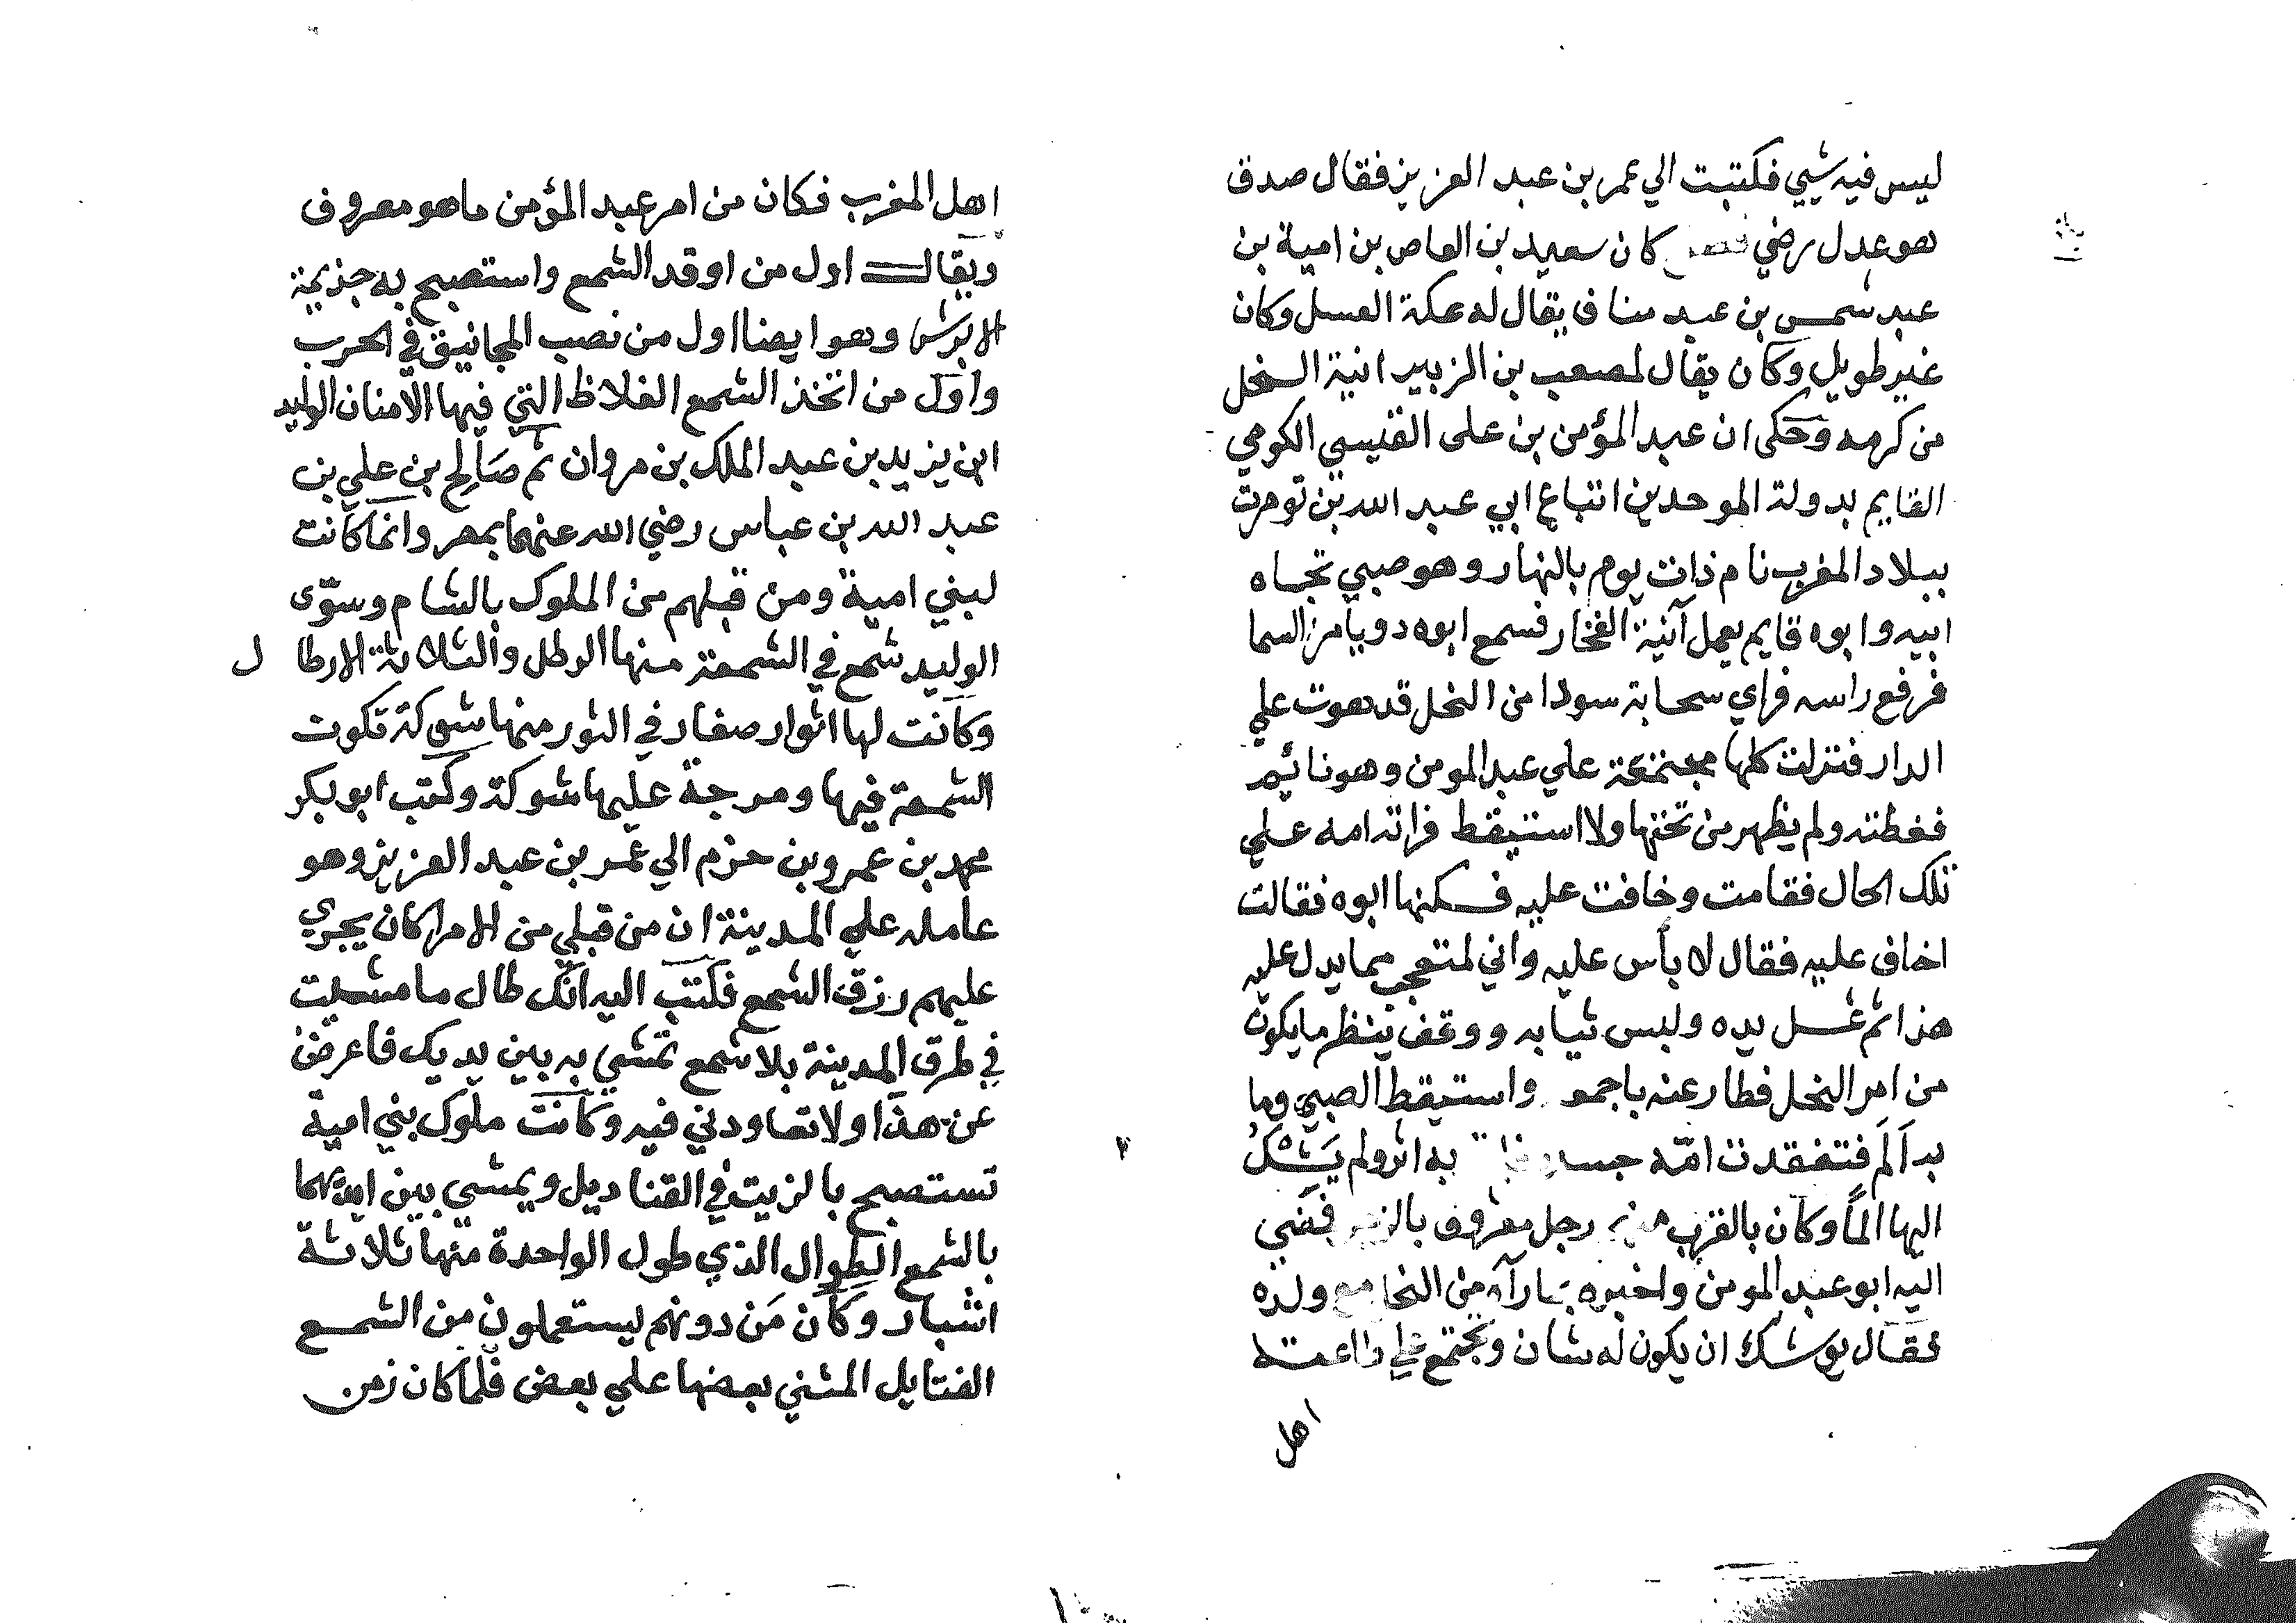 ليس فيه شيي فكتبت الي عمر بن عبد العزيز فقال صدق
هو عدل رضي كان سعيد بن العاص بن امية بن
عبد شمس بن عبد مناف يقال له عكة العسل وكان
غير طويل وكان يقال لمصعب بن الزبير انية النحل
من كرمه وحكى ان عبد المؤمن بن على القيسي الكومي
القايم بدولة الموحدين اتباع ابي عبد الله بن تومرت
ببلاد المغرب نام ذات يوم بالنهار وهو صبي تجاه
ابيه وابوه قايم يعمل آنية الفخار فسمع ابوه دويا من السما
فرفع راسه فراي سحابة سودا من النحل قد هوت علي
الدار فنزلت كلها مجتمعة علي عبد المومن وهو نائم
فغطته ولم يظهر من تحتها ولا استيقظ فراته امه علي
تلك الحال فقامت وخافت عليه فسكنها ابوه فقالت
اخاف عليه فقال لا بأس عليه واني لمتعجب مما يدل عليه
هذا ثم غسل يده ولبس ثيابه ووقف ينظر ما يكون
من امر النحل فطار عنه باجمعه واستيقظ الصبي وما
به اَلَم فتفقدت امّه جسده به اثر ولم يَشْكُ
اليها الماً وكان بالقرب رجل معروف بالزجر فمضي
اليه ابو عبد المومن واخبره بما رآه من النحل مع ولده
فقال يوشك ان يكون له شان وتجتمع علي طاعته
اهل
اهل المغرب فكان من امر عبد المؤمن ما هو معروف
ويقال اول من اوقد الشمع واستصبح به جذيمة
الابرش وهو ايضا اول من نصب المجانيق في الحرب
واول من اتخذ الشمع الغلاظ التي فيها الامنان الوليد
ابن يزيد بن عبد الملك بن مروان ثم صَالِح بن علي بن
عبد الله بن عباس رضي الله عنهما بمصر وانما كانت
لبني امية ومن قبلهم من الملوك بالشام وسوّى
الوليد شمع في الشمعة منها الرطل والثلاثة الارطا ل
وكانت لها اثوار صغار في الثور منها شوكة تكون
الشمعة فيها ومرجة عليها شوكة وكتب ابو بكر
محمد بن عمرو بن حزم الي عُمر بن عبد العزيز وهو
عامله علي المدينة ان من قبلي من الامرا كان يجري
عليهم رزق الشمع فكتب اليه انّك طال ما مشيت
في طرق المدينة بلا شمع تمشي به بين يديك فاعرض
عن هذا ولا تعاودني فيه وكانت ملوك بني امية
تستصبح بالزيت في القناديل ويمشي بين ايديهما
بالشمع الطوال الذي طول الواحدة منها ثلاثة
اشبار وكان مَن دونهم يستعملون من الشمع
الفتايل المثني بعضها علي بعض فلما كان زمن